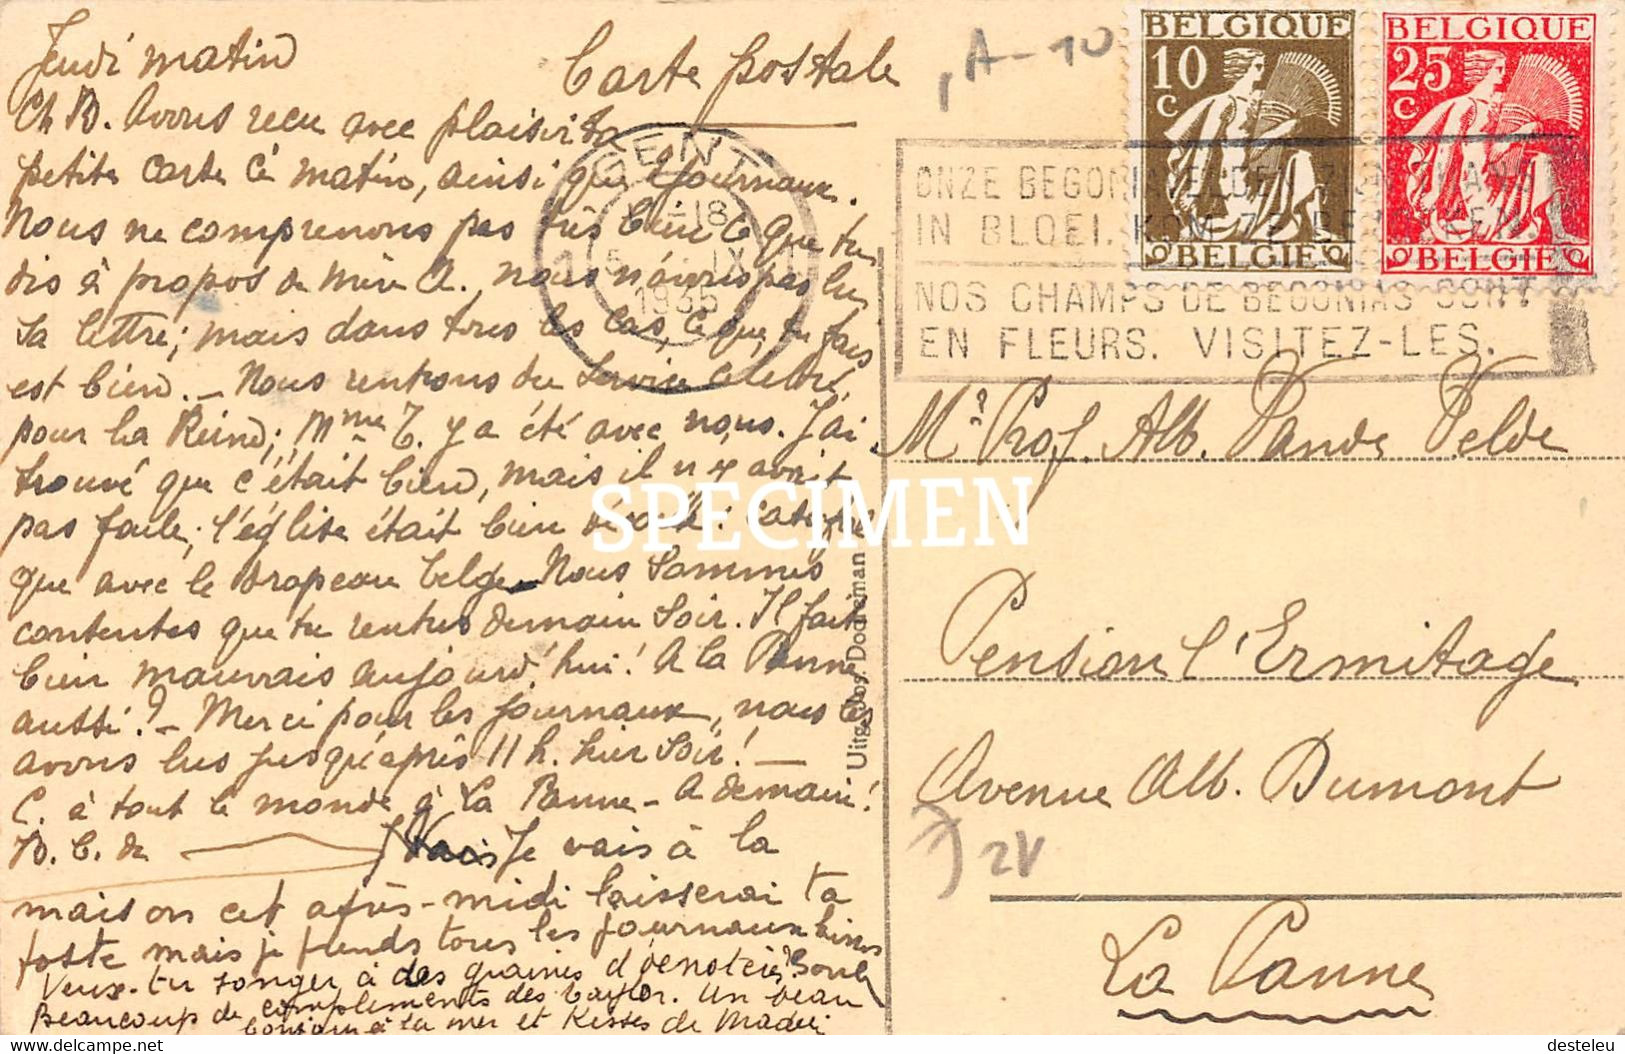 Jeudi matin
Carte postale
A-10
BELGIQUE
10
c
BELGIE
BELGIQUE
25
c
BELGIE
GENT
18
5 IX
1935
ONZE BEGONIAVELDEN ZIJN THANS
IN BLOEI. KOM ZE BEZOEKEN.
NOS CHAMPS DE BEGONIAS SONT
EN FLEURS. VISITEZ-LES.
Ch B. Avons reçu avec plaisir ta
petite carte ce matin, ainsi que journaux.
Nous ne comprenons pas très bien ce que tu
dis à propos de A. nous n'avons pas lu
sa lettre; mais dans tous les cas, ce que tu fais
est bien. — Nous rentrons du service célébré
pour la Reine; Mme T. y a été avec nous. J'ai
trouvé que c'était bien, mais il n'y avait
pas foule; l'église était bien décorée:
que avec le drapeau belge — Nous sommes
contentes que tu rentres demain soir. Il fait
bien mauvais aujourd'hui! A la Panne
aussi? — Merci pour les journaux, nous les
avons lus jusqu'après 11 h. hier soir! —
C. à tout le monde à La Panne — A demain!
B. C. de
Je vais à la
maison cet après-midi laisserai ta
poste mais je prends tous les journaux
Veux-tu songer à des graines d'
Beaucoup de compliments des Taylor. Un beau
bonjour à la mer et Kisses de
Uitg. Dooreman
SPECIMEN
Mr Prof. Alb. Vande Velde
Pension l'Ermitage
Avenue Alb. Dumont
La Panne
desteleu